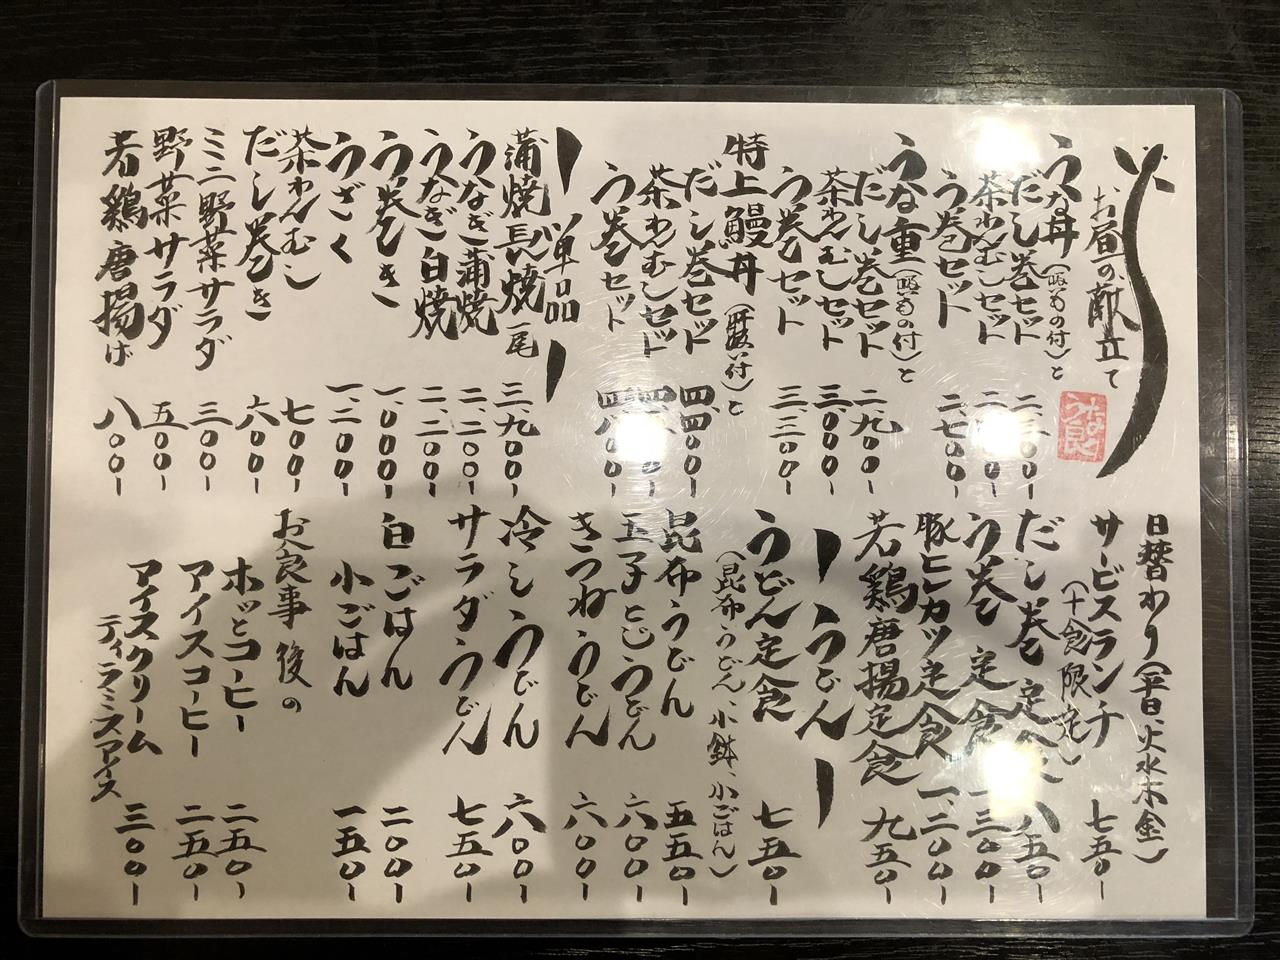 お昼の献立て
うな丼(吸もの付)と
だし巻セット 二、三〇〇-
茶わんむしセット
う巻セット 二、七〇〇-
うな重(吸もの付)と
だし巻セット 二、九〇〇-
茶わんむしセット 三、〇〇〇-
う巻セット 三、三〇〇-
特上鰻丼(肝吸い付)と
だし巻セット 四、四〇〇-
茶わんむしセット
う巻セット 四、八〇〇-
ー単品ー
蒲焼長焼一尾 三、九〇〇-
うなぎ蒲焼 二、二〇〇-
うなぎ白焼 二、二〇〇-
う巻き 一、〇〇〇-
うざく 一、二〇〇-
茶わんむし 七〇〇-
だし巻き 六〇〇-
ミニ野菜サラダ 三〇〇-
野菜サラダ 五〇〇-
若鶏唐揚げ 八〇〇-
日替わり(平日火水木金)
サービスランチ 七五〇-
(十食限定)
だし巻 定食 八五〇-
う巻 定食 一、三〇〇-
豚ヒレカツ定食 一、二〇〇-
若鶏唐揚定食 九五〇-
ーうどんー
うどん定食 七五〇-
(昆布うどん、小鉢、小ごはん)
昆布うどん 五五〇-
玉子とじうどん 六〇〇-
きつねうどん 六〇〇-
冷しうどん 六〇〇-
サラダうどん 七五〇-
白ごはん 二〇〇-
小ごはん 一五〇-
お食事後の
ホットコーヒー 二五〇-
アイスコーヒー 二五〇-
アイスクリーム 三〇〇-
ティラミスアイス